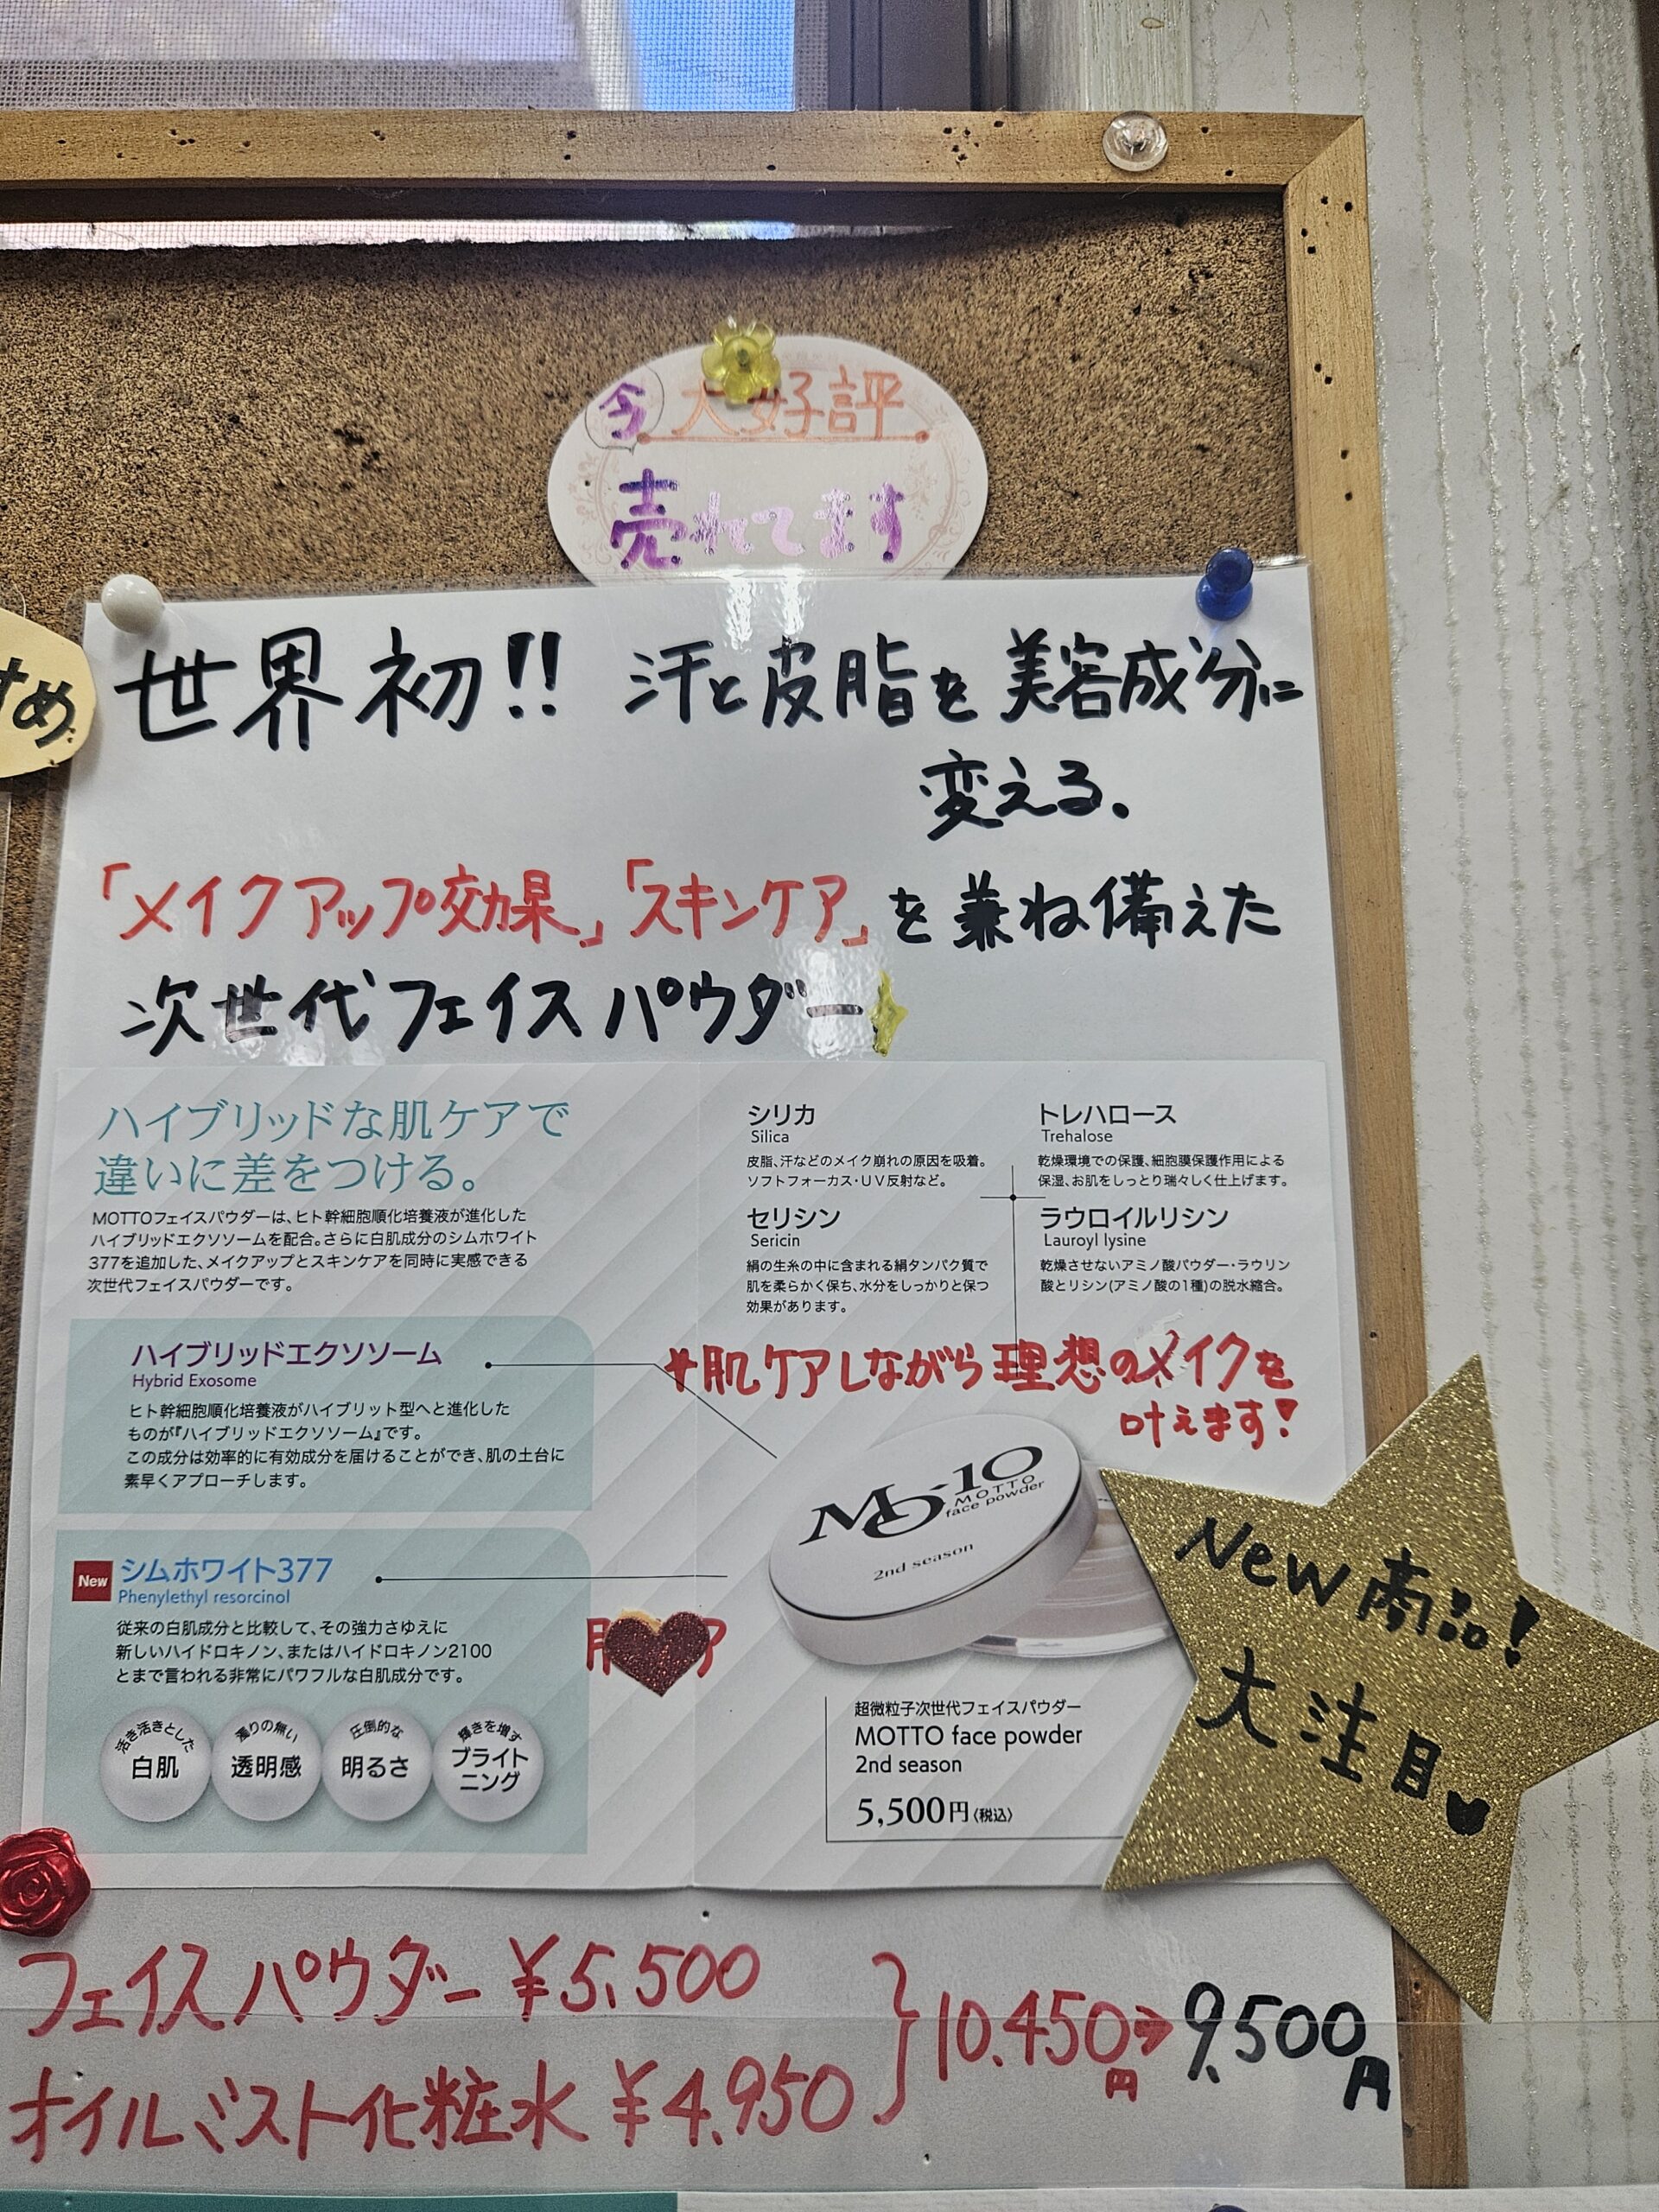 今 大好評
売れてます
すめ
世界初!! 汗と皮脂を美容成分に
変える.
「メイクアップ効果」「スキンケア」を兼ね備えた
次世代フェイスパウダー
ハイブリッドな肌ケアで
違いに差をつける。
MOTTOフェイスパウダーは、ヒト幹細胞順化培養液が進化した
ハイブリッドエクソソームを配合。さらに白肌成分のシムホワイト
377を追加した、メイクアップとスキンケアを同時に実感できる
次世代フェイスパウダーです。
シリカ
Silica
皮脂、汗などのメイク崩れの原因を吸着。
ソフトフォーカス・UV反射など。
トレハロース
Trehalose
乾燥環境での保護、細胞膜保護作用による
保湿、お肌をしっとり瑞々しく仕上げます。
セリシン
Sericin
絹の生糸の中に含まれる絹タンパク質で
肌を柔らかく保ち、水分をしっかりと保つ
効果があります。
ラウロイルリシン
Lauroyl lysine
乾燥させないアミノ酸パウダー・ラウリン
酸とリシン(アミノ酸の1種)の脱水縮合。
ハイブリッドエクソソーム
Hybrid Exosome
ヒト幹細胞順化培養液がハイブリット型へと進化した
ものが『ハイブリッドエクソソーム』です。
この成分は効率的に有効成分を届けることができ、肌の土台に
素早くアプローチします。
肌ケアしながら理想のメイクを
叶えます!
MO-10
MOTTO
face powder
2nd season
New シムホワイト377
Phenylethyl resorcinol
従来の白肌成分と比較して、その強力さゆえに
新しいハイドロキノン、またはハイドロキノン2100
とまで言われる非常にパワフルな白肌成分です。
活き活きとした
白肌
濁りの無い
透明感
圧倒的な
明るさ
輝きを増す
ブライト
ニング
超微粒子次世代フェイスパウダー
MOTTO face powder
2nd season
5,500円〈税込〉
New 商品!
大注目
フェイスパウダー ¥5,500
オイルミスト化粧水 ¥4,950
10.450円⇒9,500円